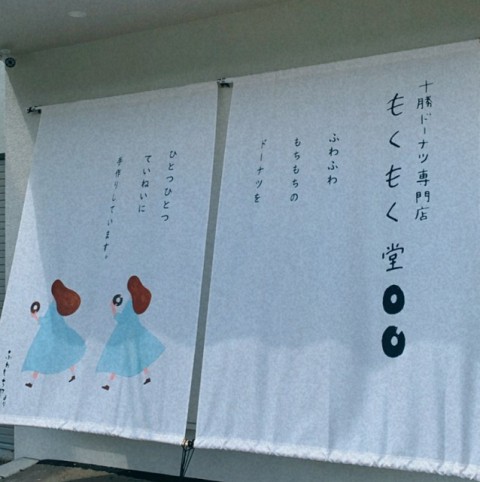 十勝ドーナツ専門店
もくもく堂
ふわふわ
もちもちの
ドーナツを
ひとつひとつ
ていねいに
手作りしています。